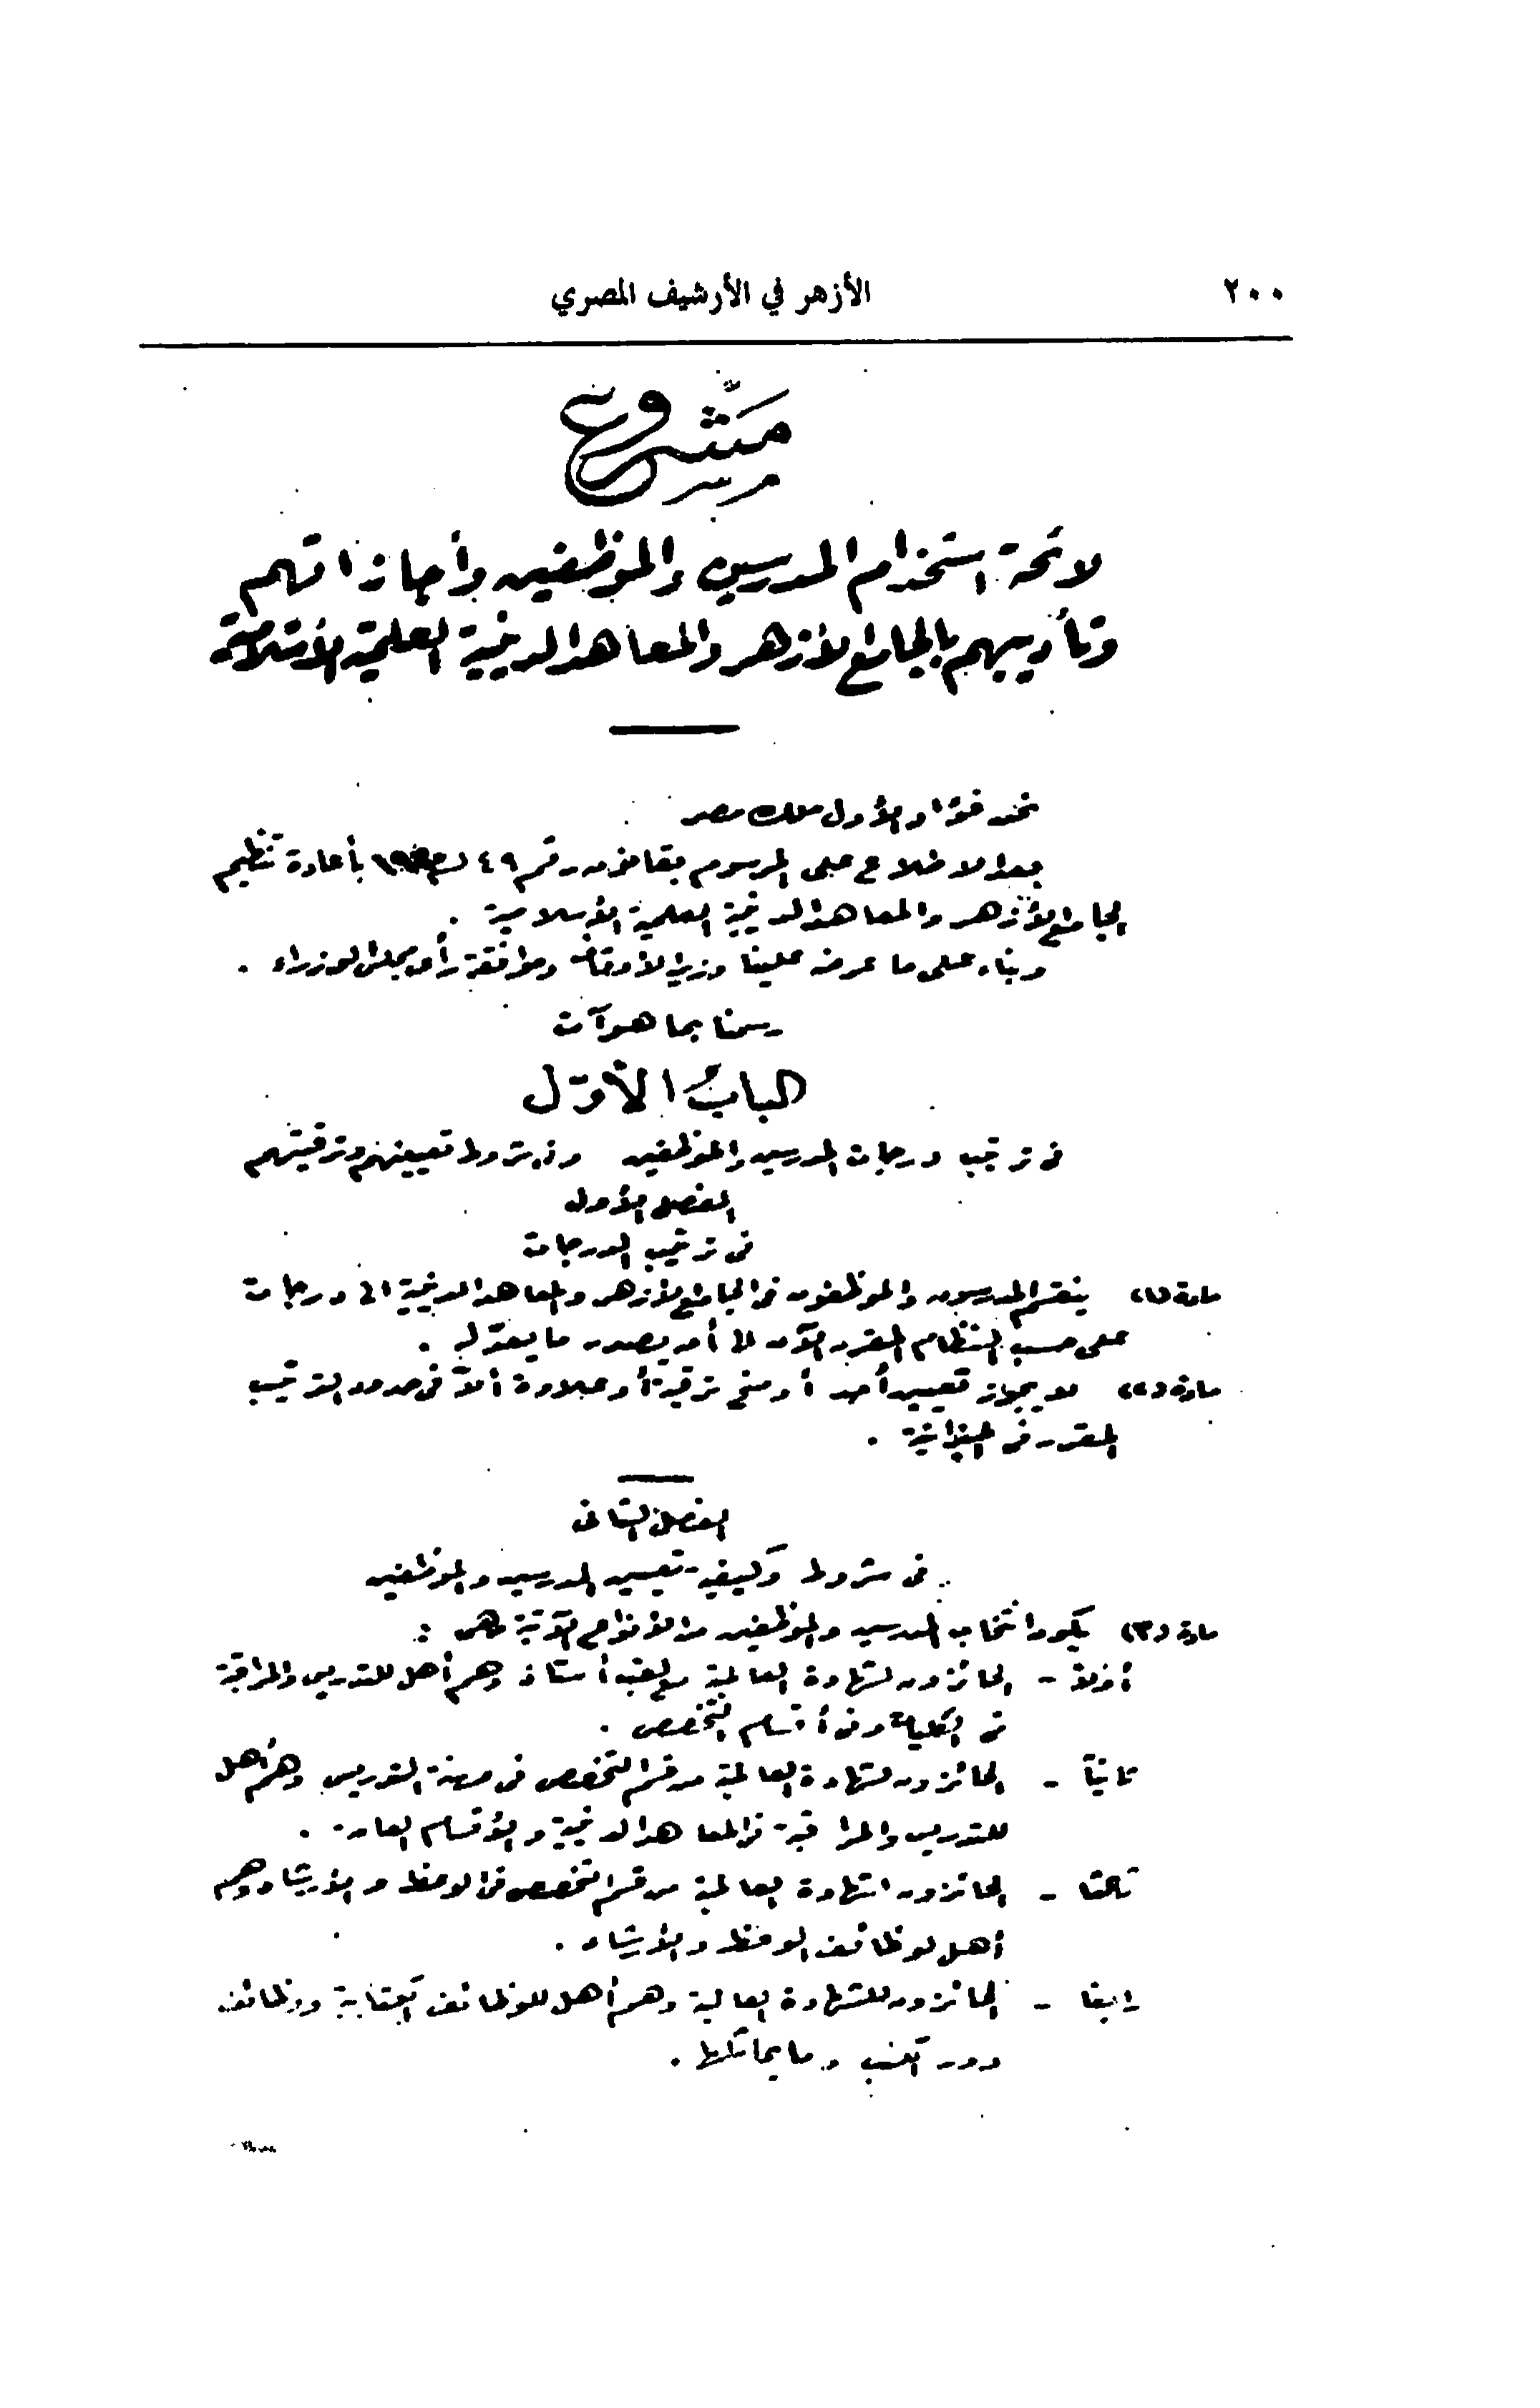 ٢٠٠
الأزهر في الأرشيف المصري
مشروع
مرسوم
لائحة استخدام المدرسين والموظفين وأجازاتهم
وتأديبهم بالجامع الأزهر والمعاهد الدينية العلمية الأسلامية
نحن فؤاد الأول ملك مصر
بعد الاطلاع على المرسوم بقانون رقم ٤٩ لسنة بأعادة تنظيم
الجامع الأزهر والمعاهد الدينية العلمية الأسلامية .
وبناء على ما عرضه علينا وزير الأوقاف وموافقة رأى مجلس الوزراء .
رسمنا بما هو آت
الباب الأوّل
فى ترتيب درجات المدرسين والموظفين وفى شروط تعيينهم وترقيتهم
الفصل الأول
فى ترتيب الدرجات
مادة (١) ينقسم المدرسون والموظفون فى الجامع الأزهر والمعاهد الدينية الى درجات
على حسب النظام المقرر الآن الى أن يصدر ما يعدّله .
مادة (٢) لا يجوز تعيين أحد أو منح ترقية أو علاوة ألاّ فى حدود الترتيب
المقرر فى الميزانية .
الفصل الثانى
فى شروط وكيفية تعيين المدرسين والموظفين
مادة (٣) يكون انتخاب المدرسين والموظفين من الأنواع الآتية وهى :
أولاً - الحائزون لشهادة العالمية مع لقب أستاذ وهم أهل للتدريس والمراقبة
فى الكليات وفى أقسام التخصص .
ثانياً - الحائزون لشهادة العالمية من قسم التخصص فى مهنة التدريس وهم أهل
للتدريس والمراقبة فى المعاهد الدينية والأقسام العامة .
ثالثا - الحائزون لشهادة العالمية من قسم التخصص فى الوعظ والأرشاد وهم
أهل لوظائف الوعظ والأرشاد .
رابعا - الحائزون للشهادة العالية وهم أهل للوظائف الكتابية ووظائف
دور الكتب وما يماثلها .